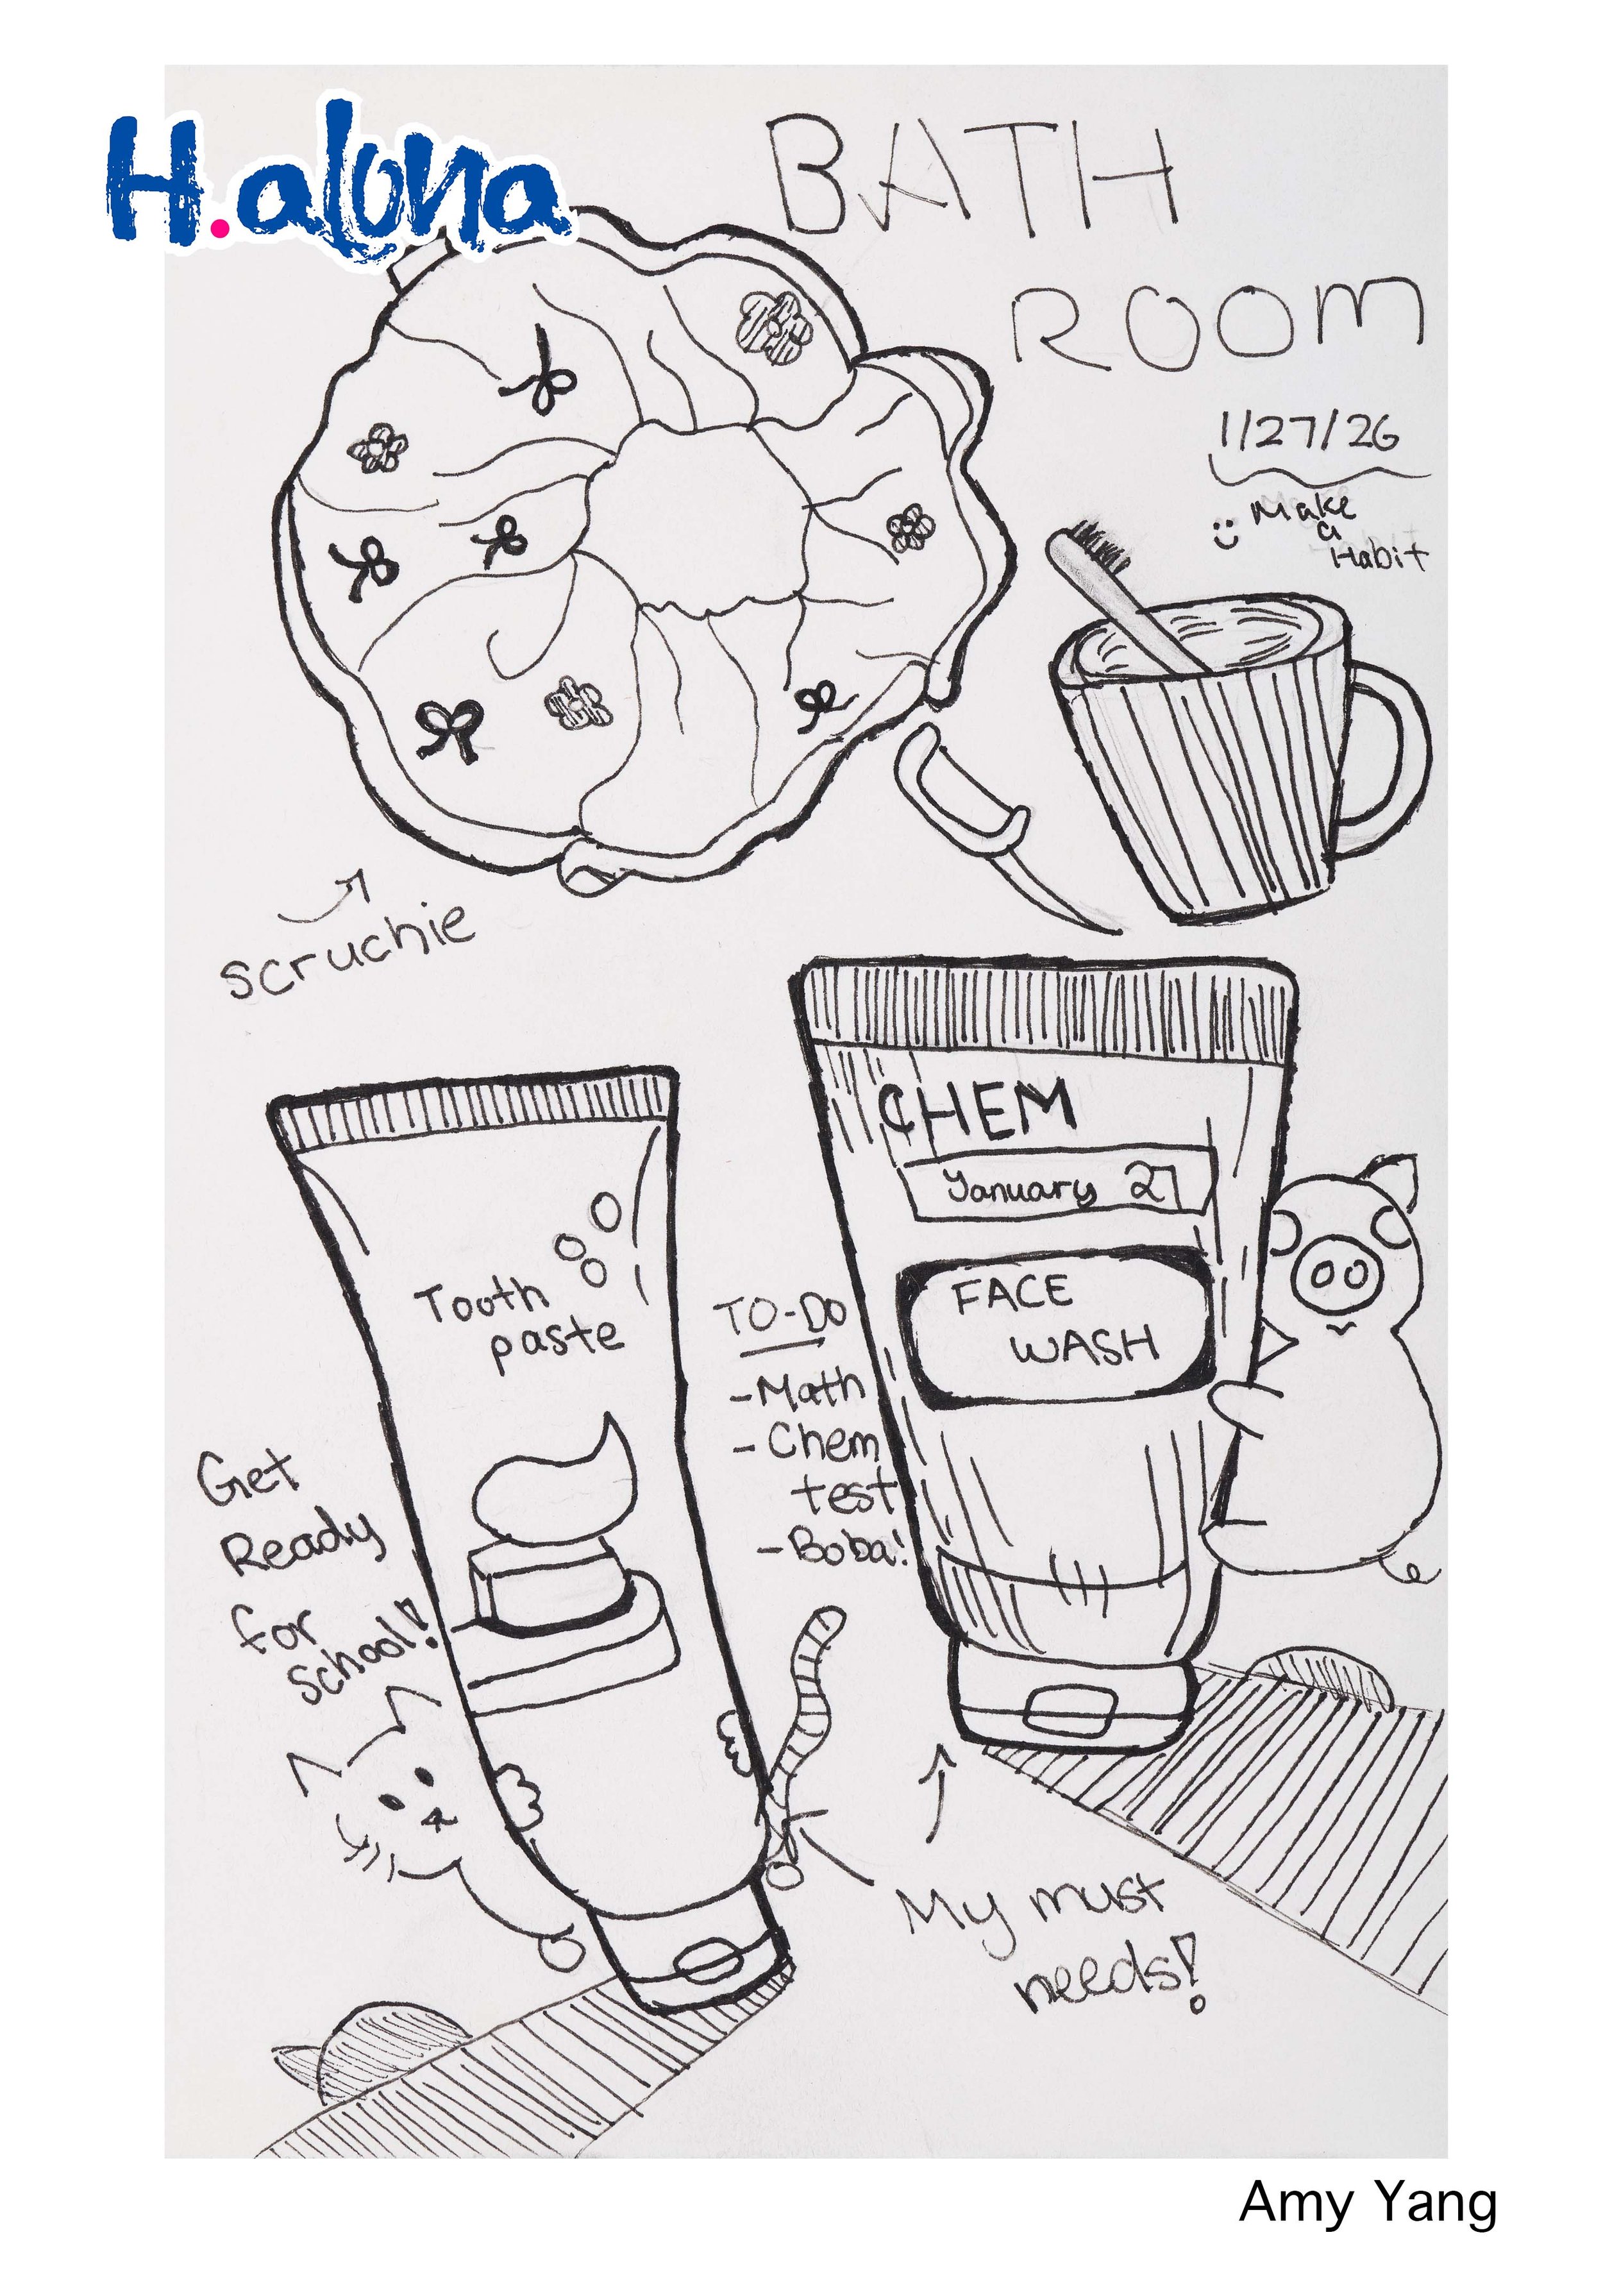 H.alona
BATH
ROOM
1/27/26
Make
a
Habit
scruchie
CHEM
January 27
FACE
WASH
Tooth
paste
TO-DO
-Math
-Chem
test
-Boba!
Get
Ready
for
School!
My must
needs!
Amy Yang